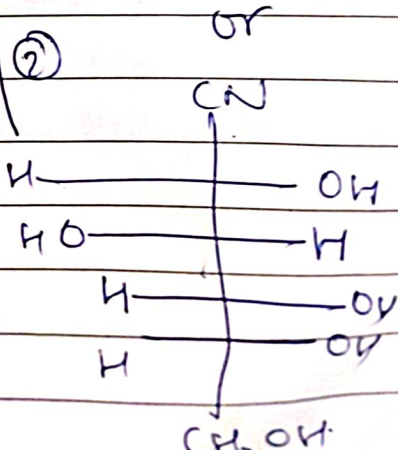 or
②
CN
H OH
HO H
H OH
H OH
CH2OH